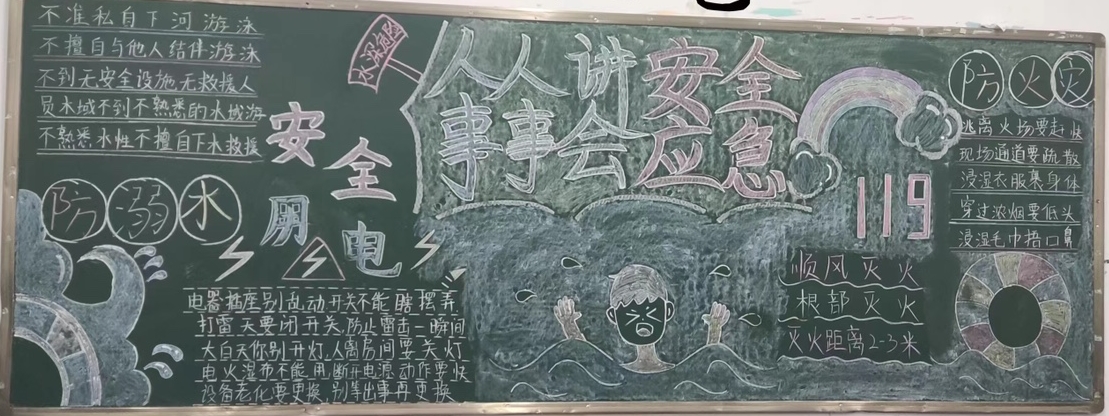 不准私自下河游泳
不擅自与他人结伴游泳
不到无安全设施无救援人
员水域不到不熟悉的水域游
不熟悉水性不擅自下水救援
防溺水
安全
用电
电器插座别乱动开关不能瞎摆弄
打雷天要闭开关,防止雷击一瞬间
大白天你别开灯,人离房间要关灯
电火湿布不能用,断开电源动作要快
设备老化要更换,别等出事再更换
水深危险
人人讲安全
事事会应急
119
顺风灭火
根部灭火
灭火距离2-3米
防火灾
逃离火场要赶快
现场通道要疏散
浸湿衣服裹身体
穿过浓烟要低头
浸湿毛巾捂口鼻